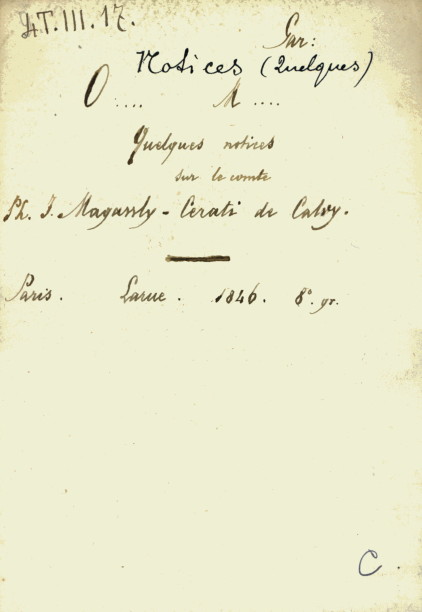 4T.III.17.
Gar:
Notices (Quelques)
O.... M....
Quelques notices
sur le comte
Ph. J. Magawly - Cerati de Calry.
Paris. Larue. 1846. 8°. gr.
C.